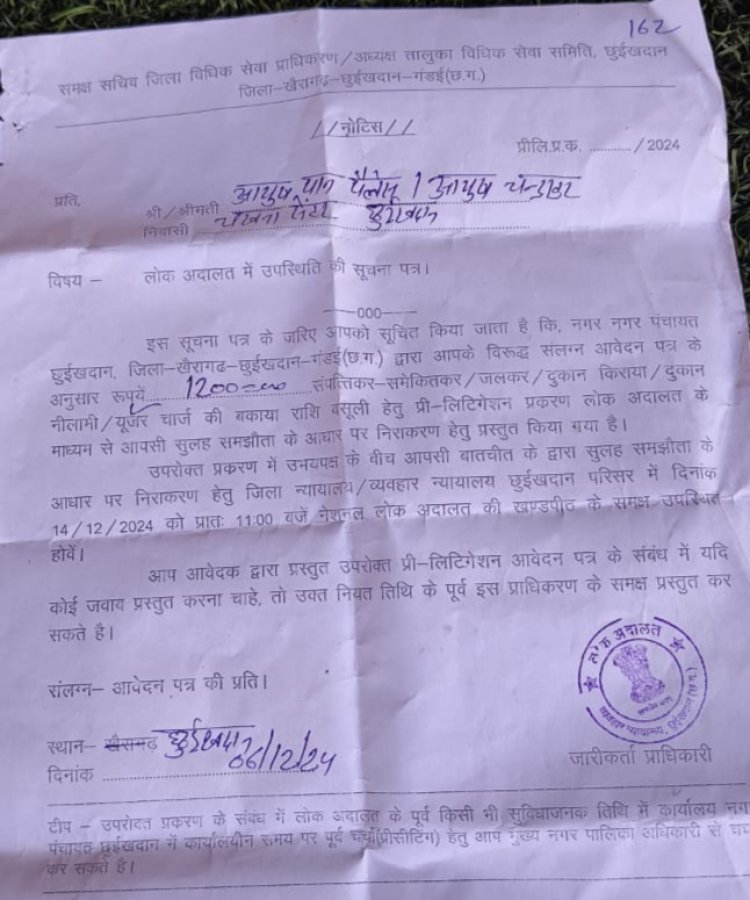 162
समक्ष सचिव जिला विधिक सेवा प्राधिकरण/अध्यक्ष तालुका विधिक सेवा समिति, छुईखदान
जिला–खैरागढ़–छुईखदान–गण्डई(छ.ग.)
//नोटिस//
प्रीलि.प्र.क. ........... / 2024
प्रति,
श्री/श्रीमती आयुष पान पैलेस / आयुष चन्द्राकर
निवासी छुईखदान
विषय – लोक अदालत में उपस्थिति की सूचना पत्र।
-----000-----
इस सूचना पत्र के जरिए आपको सूचित किया जाता है कि, नगर नगर पंचायत
छुईखदान, जिला–खैरागढ–छुईखदान–गंडई(छ.ग.) द्वारा आपके विरूद्ध संलग्न आवेदन पत्र के
अनुसार रूपयें 1200=00 संपत्तिकर–समेकितकर/जलकर/दुकान किराया/दुकान
नीलामी/यूजर चार्ज की बकाया राशि वसूली हेतु प्री–लिटिगेशन प्रकरण लोक अदालत के
माध्यम से आपसी सुलह समझौता के आधार पर निराकरण हेतु प्रस्तुत किया गया है।
उपरोक्त प्रकरण में उभयपक्ष के बीच आपसी बातचीत के द्वारा सुलह समझौता के
आधार पर निराकरण हेतु जिला न्यायालय/व्यवहार न्यायालय छुईखदान परिसर में दिनांक
14/12/2024 को प्रातः 11:00 बजें नेशनल लोक अदालत की खण्डपीठ के समक्ष उपस्थित
होवें।
आप आवेदक द्वारा प्रस्तुत उपरोक्त प्री–लिटिगेशन आवेदन पत्र के संबंध में यदि
कोई जवाब प्रस्तुत करना चाहे, तो उक्त नियत तिथि के पूर्व इस प्राधिकरण के समक्ष प्रस्तुत कर
सकते है।
संलग्न– आवेदन पत्र की प्रति।
लोक अदालत
व्यवहार न्यायालय, छुईखदान (छ.ग.)
स्थान– खैरागढ़ छुईखदान
दिनांक 06/12/24
जारीकर्ता प्राधिकारी
टीप – उपरोक्त प्रकरण के संबंध में लोक अदालत के पूर्व किसी भी सुविधाजनक तिथि में कार्यालय नगर
पंचायत छुईखदान में कार्यालयीन समय पर पूर्व चर्चा(प्रीसीटिंग) हेतु आप मुख्य नगर पालिका अधिकारी से
कर सकते है।